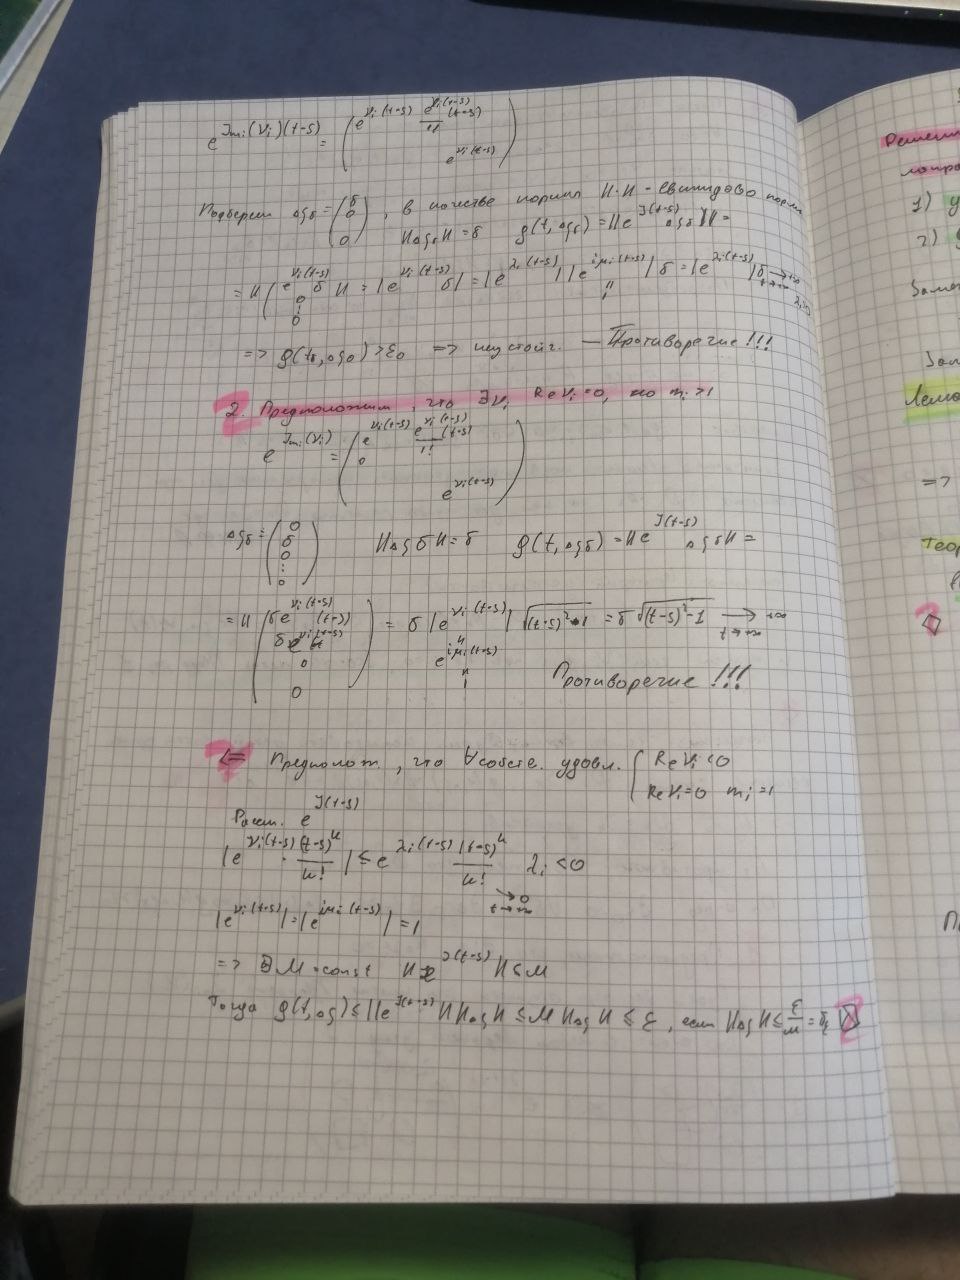 e^{J_{m_i}(ν_i)(t-s)} = ( e^{ν_i(t-s)} e^{ν_i(t-s)}/1! (t-s)
e^{ν_i(t-s)} )
Подберем Δξδ = (δ 0 0), в качестве нормы ||·|| - евклидово норм
||Δξδ|| = δ g(t, Δξδ) = ||e^{J(t-s)} Δξδ|| =
= ||( e^{ν_i(t-s)} δ || = |e^{ν_i(t-s)} δ| = |e^{λ_i(t-s)}| |e^{iμ_i(t-s)}| δ = |e^{λ_i(t-s)}| δ → +∞
0 ⋮ 0 " 1 t→+∞ λ_i>0
=> g(t_δ, Δξ_0) > ε_0 => неустойч. — Противоречие!!!
2. Предположим, что ∃ν_i Reν_i = 0, но m_i > 1
e^{J_{m_i}(ν_i)} = ( e^{ν_i(t-s)} e^{ν_i(t-s)}/1! (t-s)
0
e^{ν_i(t-s)} )
Δξδ = (0 δ 0 ⋮ 0) ||Δξδ|| = δ g(t, Δξδ) = ||e^{J(t-s)} Δξδ|| =
= ||( δe^{ν_i(t-s)} (t-s) = δ |e^{ν_i(t-s)}| √((t-s)²-1) = δ √((t-s)²-1) → +∞
δ e^{ν_i(t-s)} " t→+∞
0 e^{iμ_i(t-s)}
0 ) " 1 Противоречие!!!
<= Предполож., что ∀собств. удовл. { Reν_i < 0
Reν_i = 0 m_i = 1
Рассм. e^{J(t-s)}
|e^{ν_i(t-s)} · (t-s)^k/k!| ≤ e^{λ_i(t-s)} |t-s|^k/k! λ_i < 0
→ 0 t→+∞
|e^{ν_i(t-s)}| = |e^{iμ_i(t-s)}| = 1
=> ∃M = const ||e^{J(t-s)}|| ≤ M
Тогда g(t, Δξ) ≤ ||e^{J(t-s)}|| ||Δξ|| ≤ M ||Δξ|| ≤ ε, если ||Δξ|| ≤ ε/M = δ_ε
Решени
1) у
2)
Лемм
=>
Теор